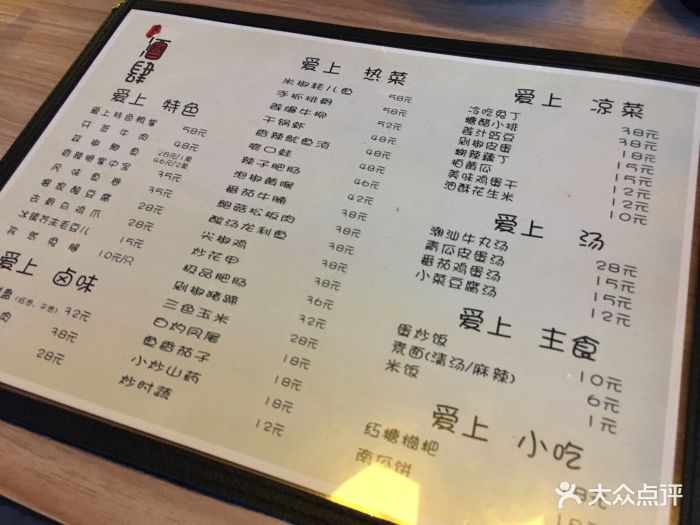 酒肆
爱上 特色
爱上特色鸭掌 58元
牛肉 48元
鲍鱼 28元/1隻
46元/2隻
香辣脆掌中宝 35元
风味鱼卷 35元
客家酿豆腐 28元
去骨白鸡爪 28元
冰镇芥末毛豆儿 15元
孜然骨腿 10元/只
爱上 卤味
32元
肉 38元
28元
爱上 热菜
米椒耗儿鱼 58元
手抓排骨 58元
首爆牛柳 48元
干锅虾 52元
香辣鱿鱼须 48元
馋口蛙 48元
辣子肥肠 48元
泡椒黄喉 46元
番茄牛腩 42元
鲍菇松板肉 38元
酸汤龙利鱼 38元
尖椒鸡 38元
炒花甲 38元
极品肥肠 38元
剁椒猪蹄 36元
三色玉米 32元
白灼凤尾 28元
鱼香茄子 18元
小炒山药 18元
炒时蔬 18元
12元
爱上 凉菜
冷吃兔丁 38元
糖醋小排 38元
姜汁豇豆 18元
剁椒皮蛋 15元
糊辣藕丁 15元
拍黄瓜 12元
美味鸡蛋干 12元
油酥花生米 10元
爱上 汤
潮汕牛丸汤 28元
青瓜皮蛋汤 15元
番茄鸡蛋汤 15元
小菜豆腐汤 12元
爱上 主食
蛋炒饭 10元
素面(清汤/麻辣) 6元
米饭 1元
爱上 小吃
红糖糍粑
南瓜饼
大众点评